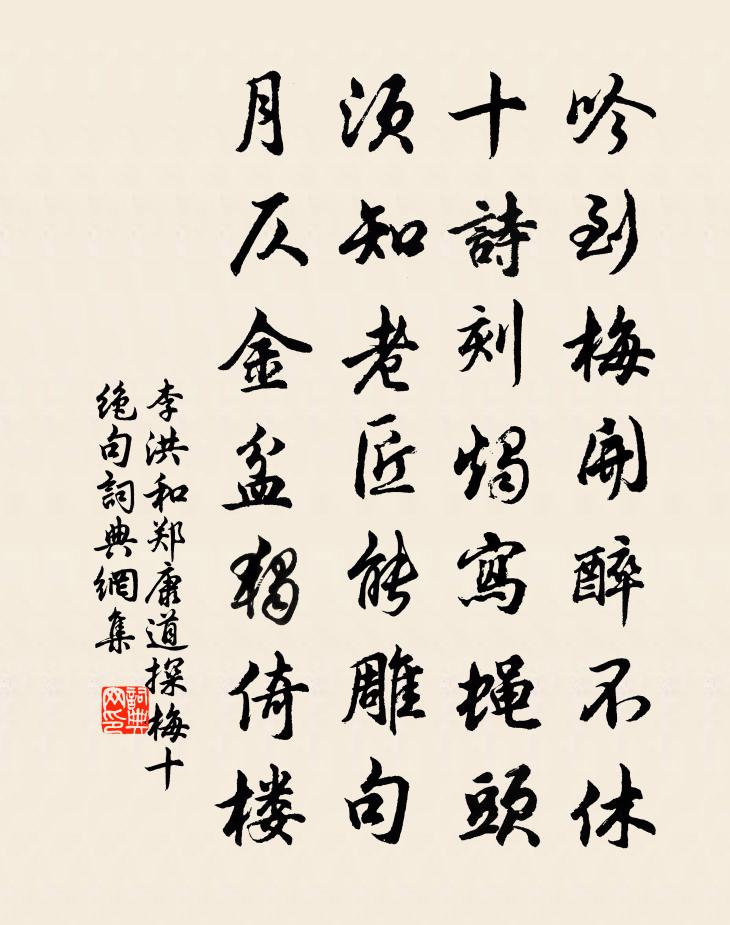 吟到梅開醉不休
十詩刻燭寫蝇頭
須知老匠能雕句
月仄金盆独倚楼
李洪和郑康道探梅十
绝句詞典網集
詞典
网印